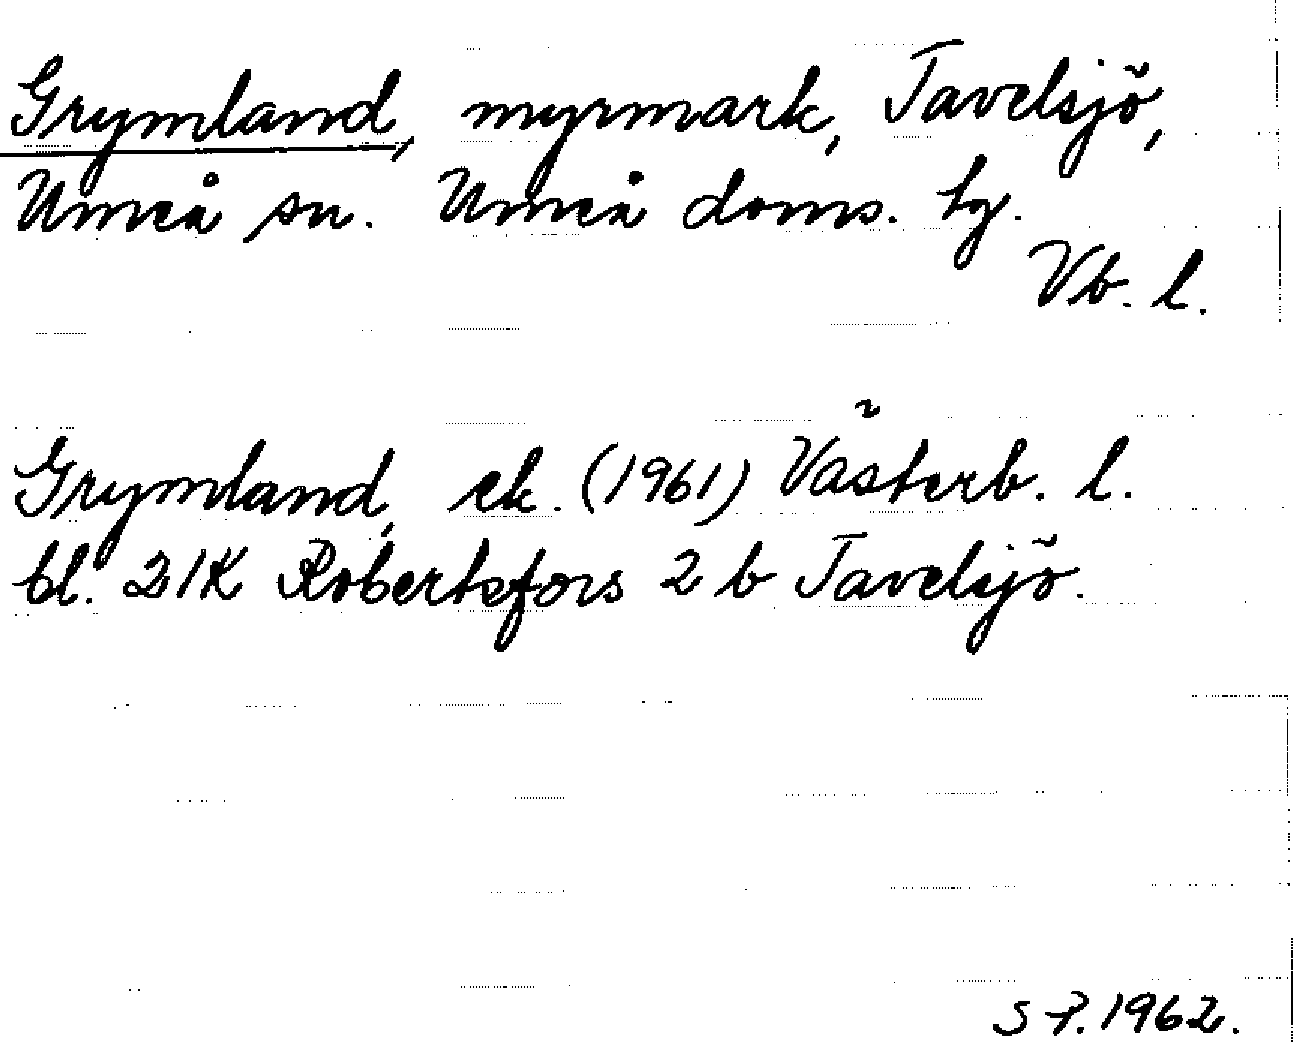 Grymland, myrmark, Tavelsjö,
Umeå sn. Umeå doms. hg.
Vb. l.
Grymland, ek. (1961) Västerb. l.
bl. 21K Robertsfors 2 b Tavelsjö.
S P. 1962.